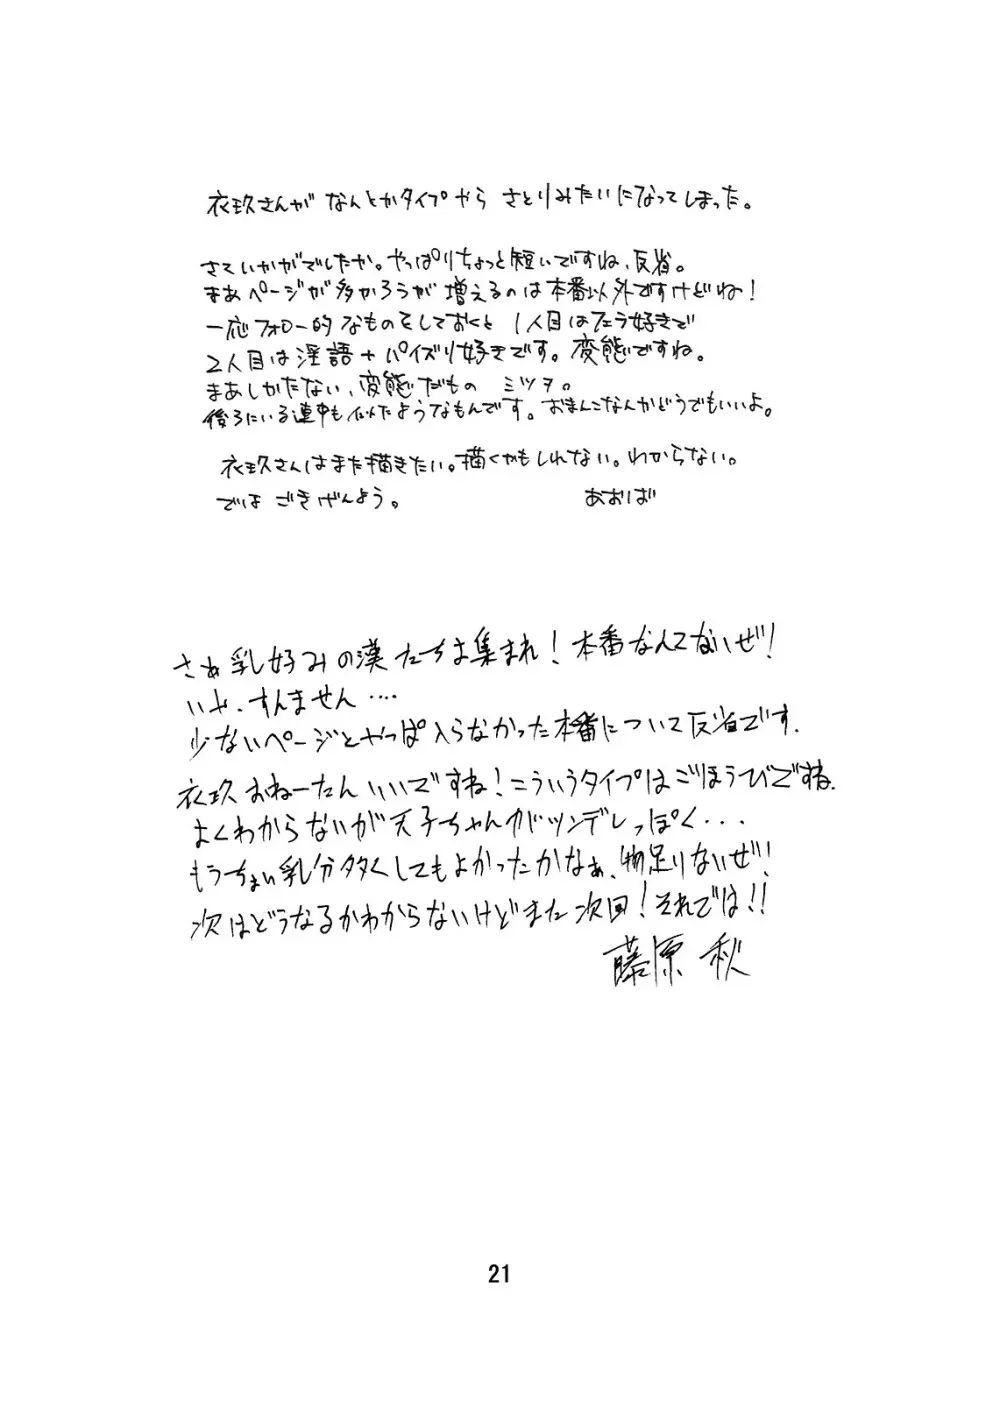 衣玖さんが なんとかタイプやら さとりみたいになってしまった。
さていかがでしたか。やっぱりちょっと短いですね、反省。
まあページが多かろうが増えるのは本番以外ですけどね!
一応フォロー的なものをしておくと 1人目はフェラ好きで
2人目は淫語+パイズリ好きです。変態ですね。
まあしかたない、変態だもの ミツヲ。
後ろにいる連中も似たようなもんです。おまんこなんかどうでもいいよ。
衣玖さんはまた描きたい。描くかもしれない。わからない。
ではごきげんよう。 あおば
さぁ乳好みの漢たちよ集まれ!本番なんてないぜ!
いや、すんません‥‥
少ないページとやっぱ入らなかった本番について反省です.
衣玖おねーたんいいですね!こういうタイプはごほうびですね.
よくわからないが天子ちゃんがツンデレっぽく・・・
もうちょい乳分多くしてもよかったかなぁ、物足りないぜ!
次はどうなるかわからないけどまた次回!それでは!!
藤原 秋
21